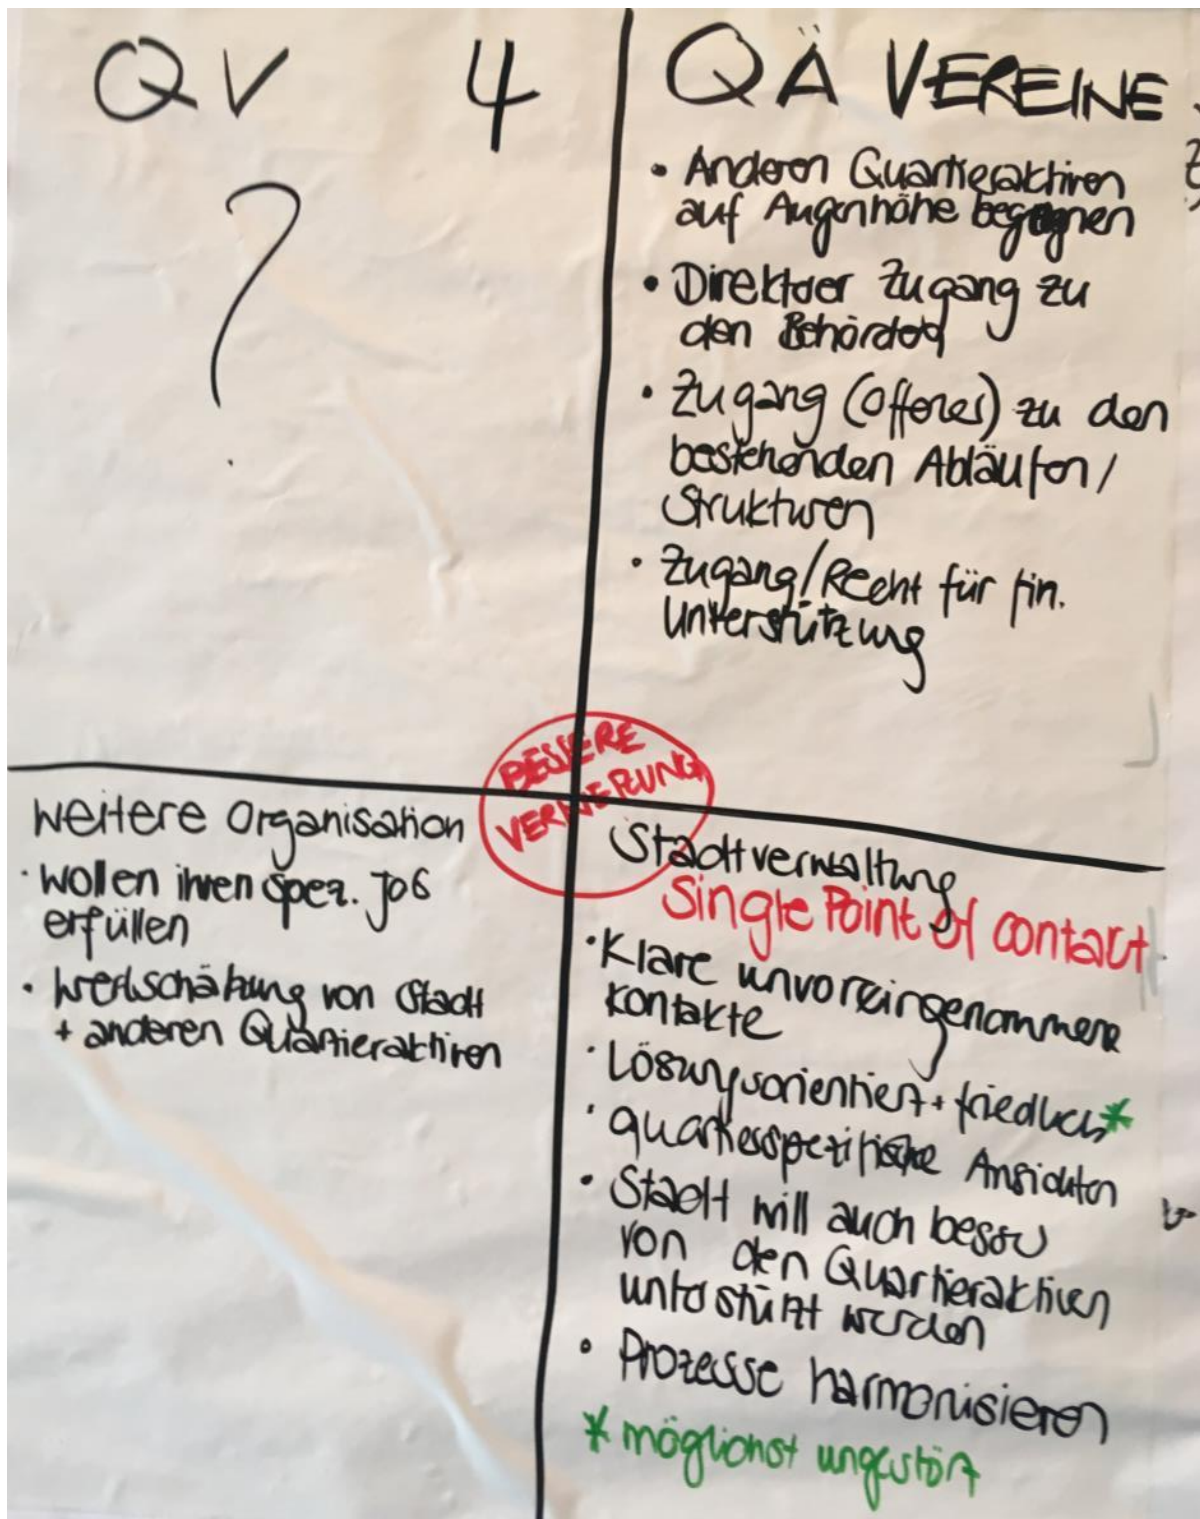 QV 4
?
QÄ VEREINE
• Anderen Quartieraktiven
auf Augenhöhe begegnen
• Direkter Zugang zu
den Behörden
• Zugang (offenes) zu den
bestehenden Abläufen /
Strukturen
• Zugang/Recht für fin.
Unterstützung
BESSERE
VERNETZUNG
Weitere Organisation
• wollen ihren spez. Job
erfüllen
• Wertschätzung von Stadt
+ anderen Quartieraktiven
Stadtverwaltung
Single Point of contact
• Klare unvoreingenommene
Kontakte
• Lösungsorientiert + friedlich*
• quartiersspezifische Ansichten
• Stadt will auch besser
von den Quartieraktiven
unterstützt werden
• Prozesse harmonisieren
* möglichst ungestört